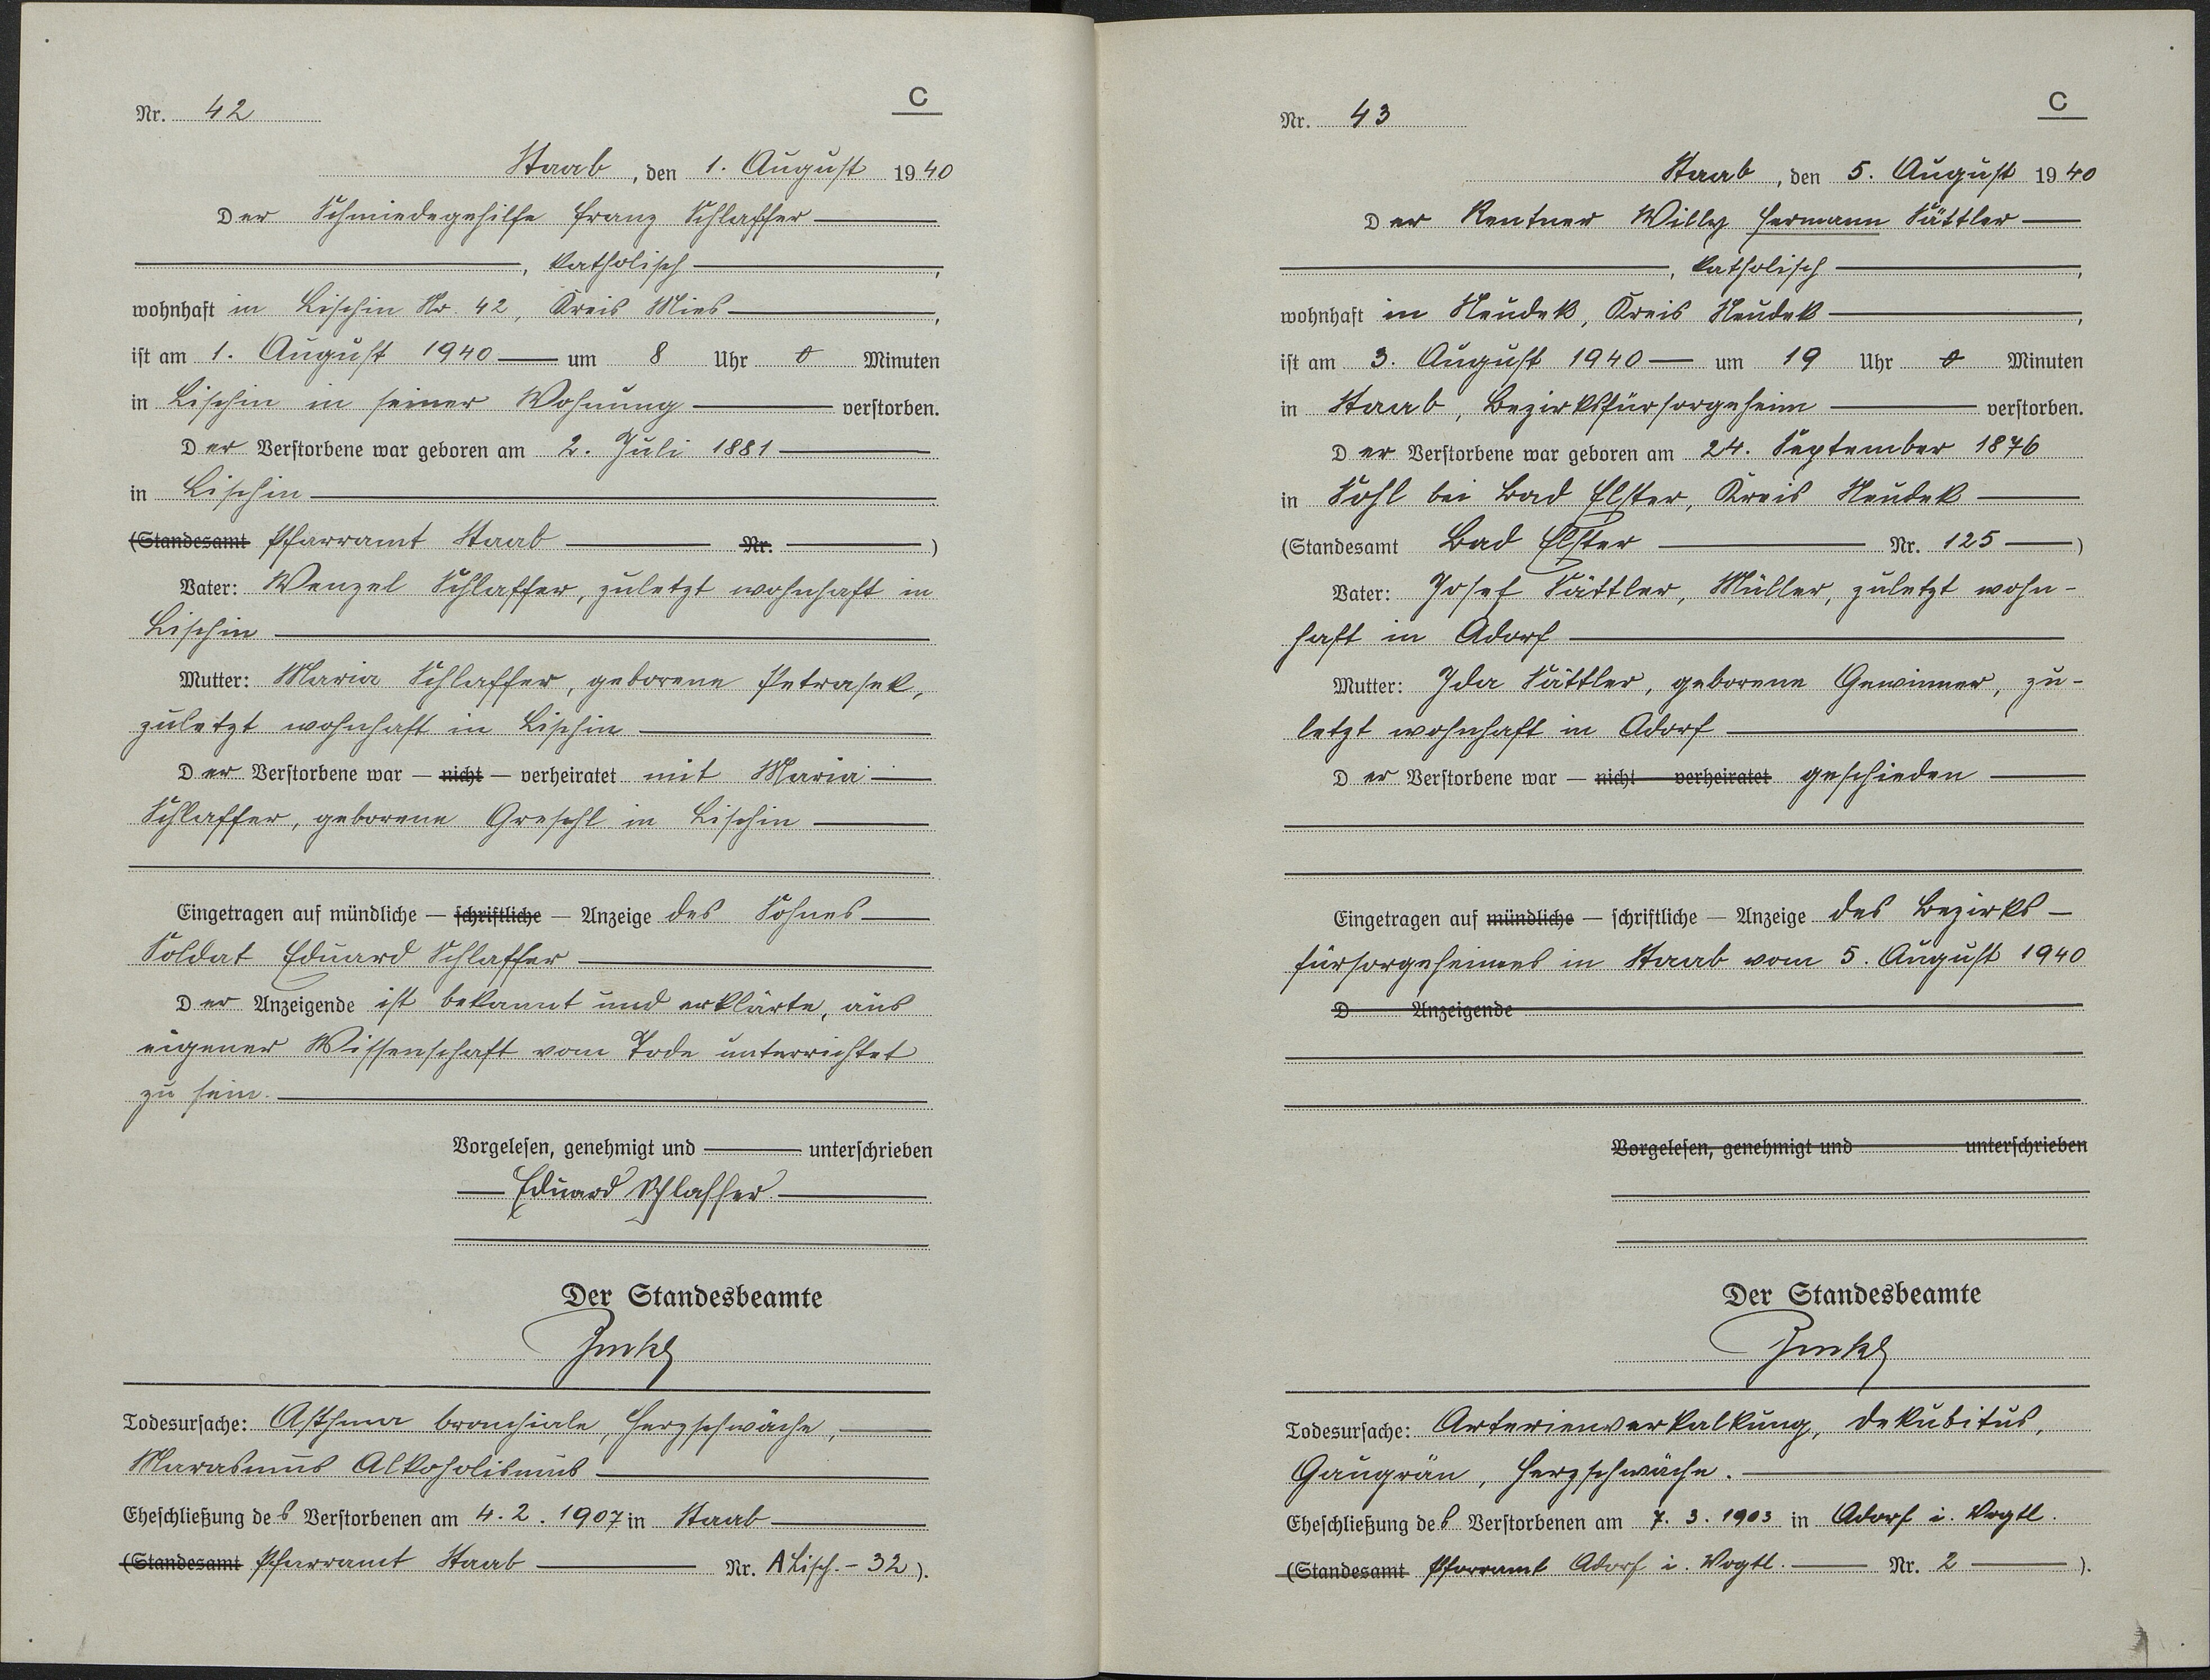 Nr. 42
C
Staab, den 1. August 1940
Der Schmiedegehilfe Franz Schlaffer
, katholisch,
wohnhaft in Lischin Nr. 42, Kreis Mies,
ist am 1. August 1940 um 8 Uhr 0 Minuten
in Lischin in seiner Wohnung verstorben.
Der Verstorbene war geboren am 2. Juli 1881
in Lischin
(Standesamt Pfarramt Staab Nr. )
Vater: Wenzel Schlaffer, zuletzt wohnhaft in
Lischin
Mutter: Maria Schlaffer, geborene Petrasek,
zuletzt wohnhaft in Lischin
Der Verstorbene war — nicht — verheiratet mit Maria
Schlaffer, geborene Greschl in Lischin
Eingetragen auf mündliche — schriftliche — Anzeige des Sohnes
Soldat Eduard Schlaffer
Der Anzeigende ist bekannt und erklärte, aus
eigener Wissenschaft vom Tode unterrichtet
zu sein.
Vorgelesen, genehmigt und unterschrieben
Eduard Schlaffer
Der Standesbeamte
Todesursache: Asthma bronchiale, Herzschwäche,
Marasmus Alkoholismus
Eheschließung des Verstorbenen am 4.2.1907 in Staab
(Standesamt Pfarramt Staab Nr. A Lisch.-32).
Nr. 43
C
Staab, den 5. August 1940
Der Rentner Willy Hermann Sättler
, katholisch,
wohnhaft in Neudek, Kreis Neudek,
ist am 3. August 1940 um 19 Uhr 0 Minuten
in Staab, Bezirksfürsorgeheim verstorben.
Der Verstorbene war geboren am 24. September 1876
in Sohl bei Bad Elster, Kreis Neudek
(Standesamt Bad Elster Nr. 125)
Vater: Josef Sättler, Müller, zuletzt wohn-
haft in Adorf
Mutter: Ida Sättler, geborene Gewinner, zu-
letzt wohnhaft in Adorf
Der Verstorbene war — nicht verheiratet geschieden
Eingetragen auf mündliche — schriftliche — Anzeige des Bezirks-
fürsorgeheimes in Staab vom 5. August 1940
D Anzeigende
Vorgelesen, genehmigt und unterschrieben
Der Standesbeamte
Todesursache: Arterienverkalkung, Dekubitus,
Gangrän, Herzschwäche.
Eheschließung des Verstorbenen am 7.3.1903 in Adorf i. Vogtl.
(Standesamt Pfarramt Adorf i. Vogtl. Nr. 2 ).